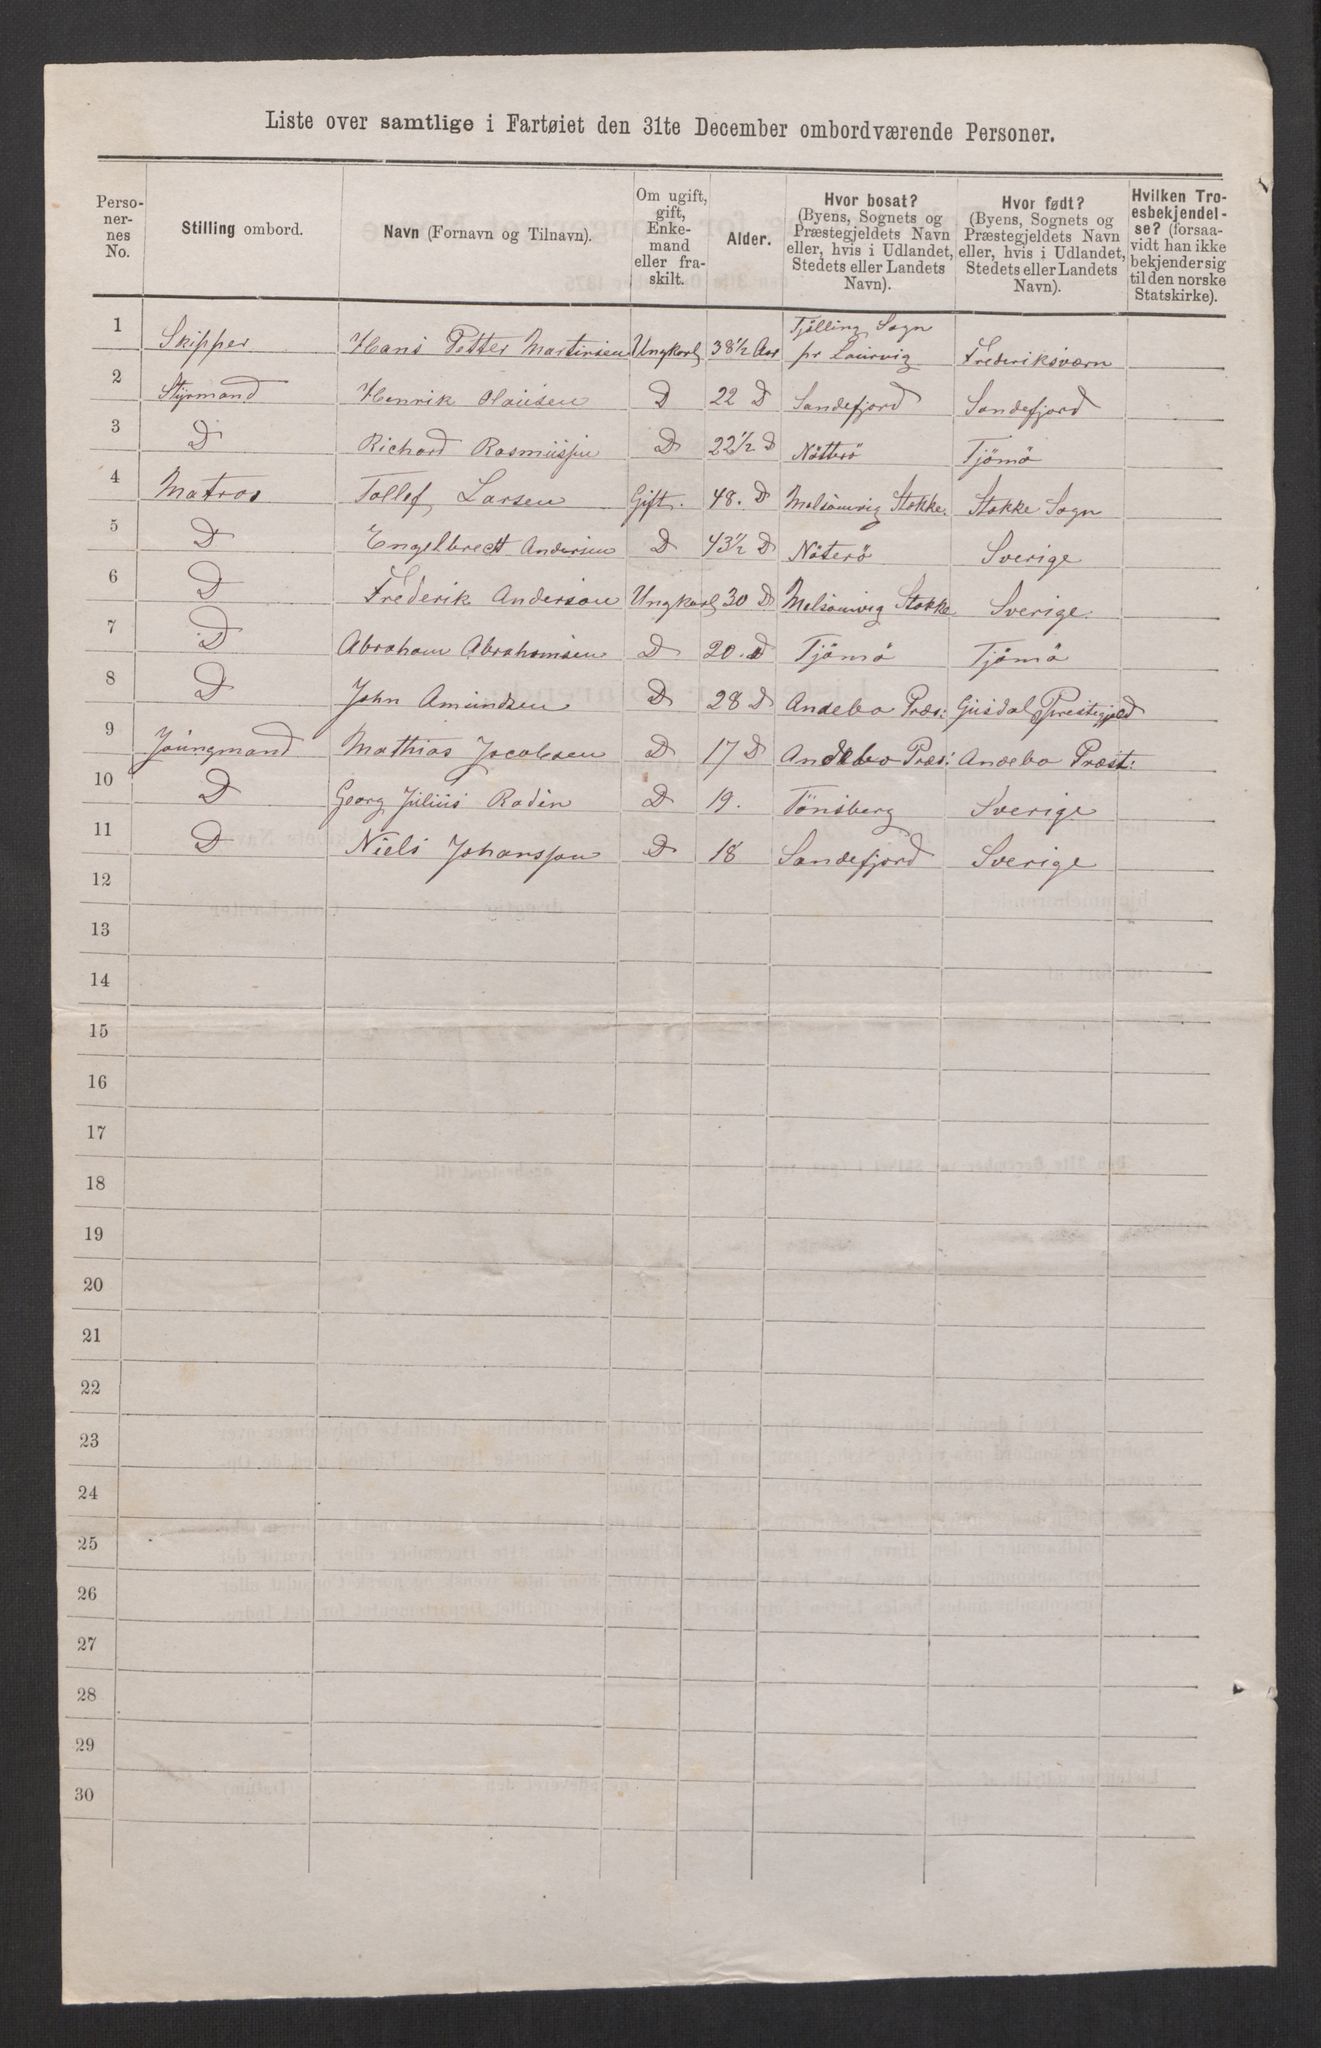 Liste over samtlige i Fartøiet den 31te December ombordværende Personer.
Perso-nernes No. | Stilling ombord. | Navn (Fornavn og Tilnavn). | Om ugift, gift, Enkemand eller fraskilt. | Alder. | Hvor bosat? (Byens, Sognets og Præstegjeldets Navn eller, hvis i Udlandet, Stedets eller Landets Navn). | Hvor født? (Byens, Sognets og Præstegjeldets Navn eller, hvis i Udlandet, Stedets eller Landets Navn). | Hvilken Troesbekjendelse? (forsaavidt han ikke bekjender sig til den norske Statskirke).
1 Skipper Hans Petter Martinsen Ungkarl 38½ Aar Tjølling Sogn pr Laurvig Frederiksværn
2 Styrmand Henrik Olausen D 22 D Sandefjord Sandefjord
3 D Richard Rasmussen D 22½ D Nötterö Tjömö
4 Matros Tollef Larsen Gift. 48. D Melsomvig Stokke. Stokke Sogn
5 D Engelbrect Andersen D 43½ D Nöterö Sverige
6 D Frederik Anderson Ungkarl 30 D Melsomvig Stokke Sverige.
7 D Abraham Abrahamsen D 20. D Tjömö Tjömö
8 D John Amundsen D 28 D Andebo Præs: Gusdal Prestegjeld
9 Joungmand Mathias Jacobsen D 17 D Andebo Præs: Andebo Præst:
10 D Georg Julius Rodin D 19. Tönsberg Sverige
11 D Niels Johansson D 18 Sandefjord Sverige
12
13
14
15
16
17
18
19
20
21
22
23
24
25
26
27
28
29
30